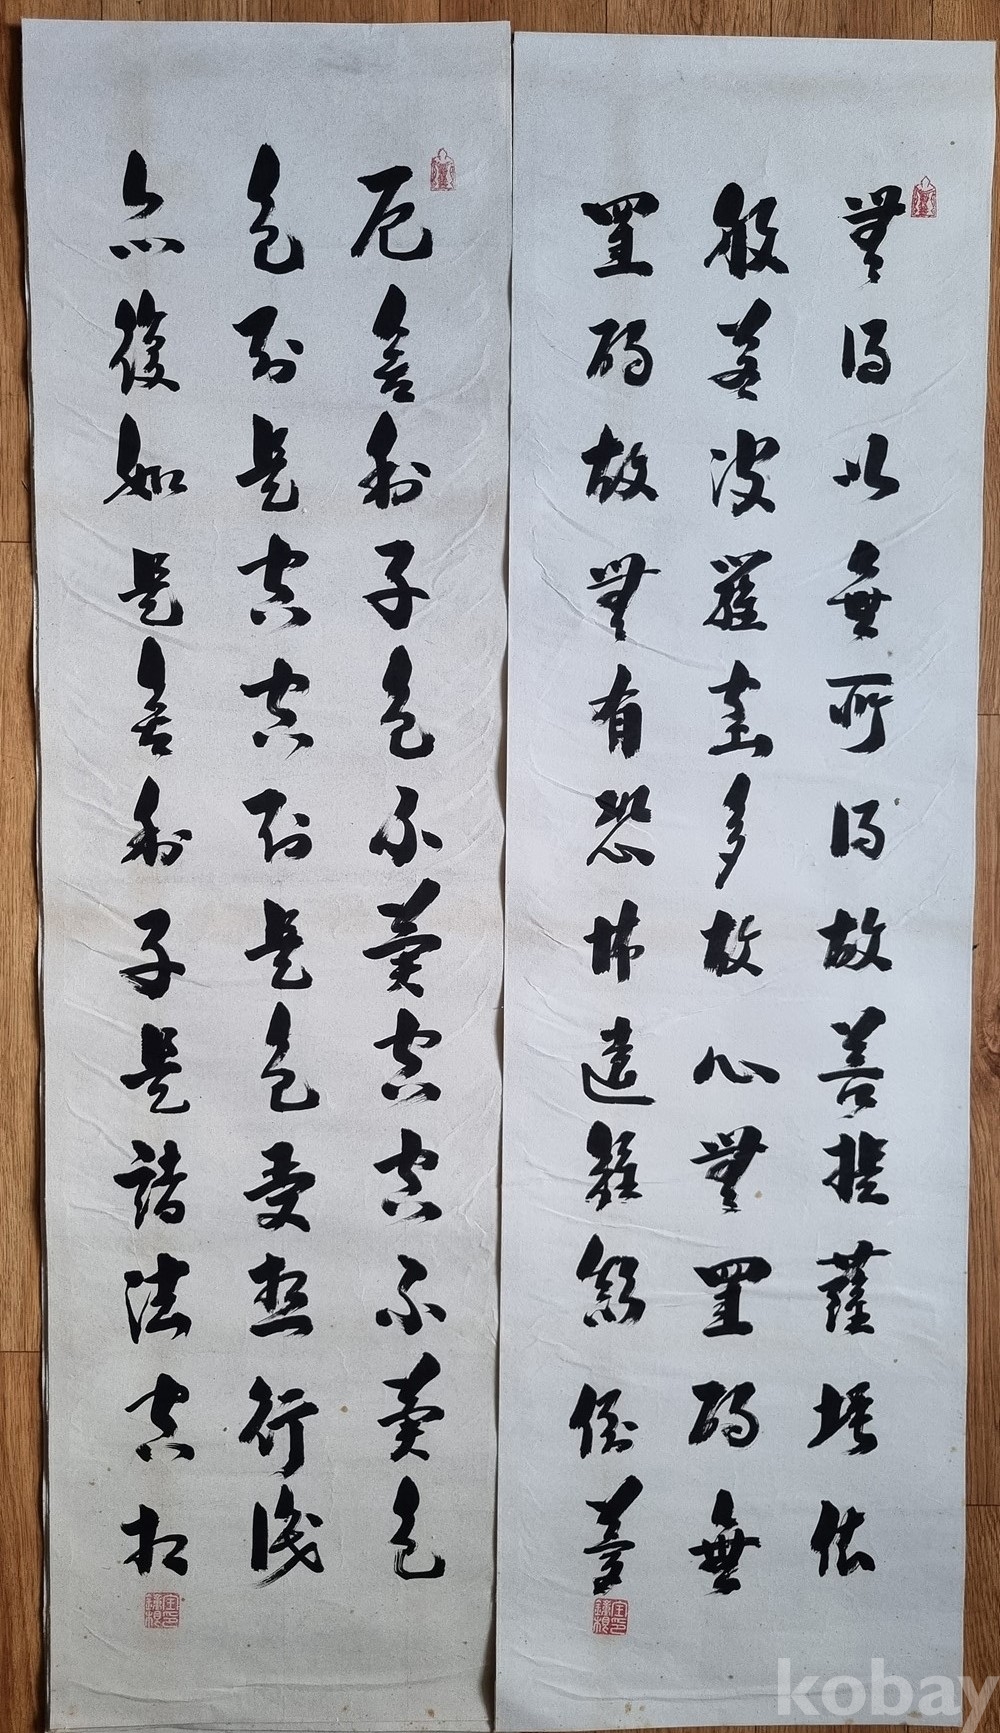 無得以無所得故菩提薩埵依
般若波羅蜜多故心無罣碍無
罣碍故無有恐怖遠離顛倒夢
厄舍利子色不異空空不異色
色即是空空即是色受想行識
亦復如是舍利子是諸法空相
kobay